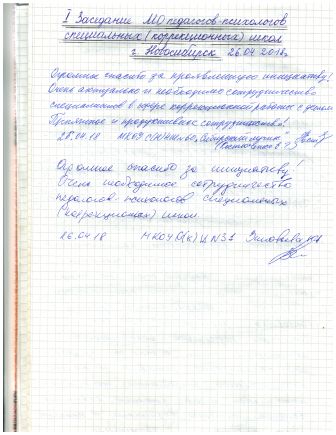 I Заседание МО педагогов-психологов
специальных (коррекционных) школ
г. Новосибирск 26.04.2018г.
Огромное спасибо за проявленную инициативу!
Очень актуально и необходимо сотрудничество
специалистов в сфере коррекционной работы с детьми
Приятного и продуктивного сотрудничества!
26.04.18 МКОУ "Сибирский лучик"
Огромное спасибо за инициативу!
Очень необходимое сотрудничество
педагогов-психологов специальных
(коррекционных) школ.
26.04.18 МКОУ С(К)Ш №31